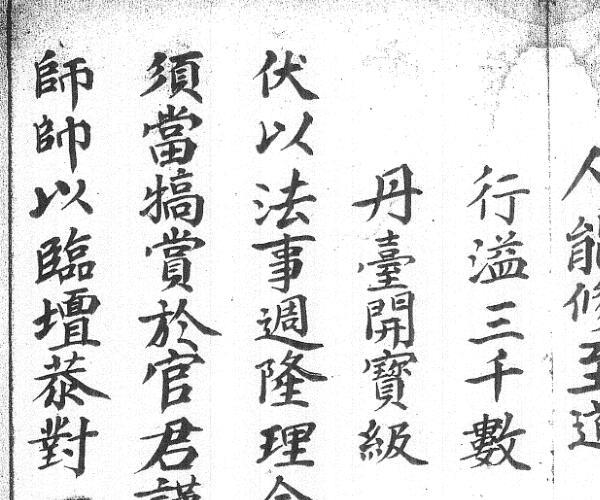 人能修至道
行溢三千數
丹臺開寶級
伏以法事週隆理合
須當犒賞於官君謹
師帥以臨壇恭對